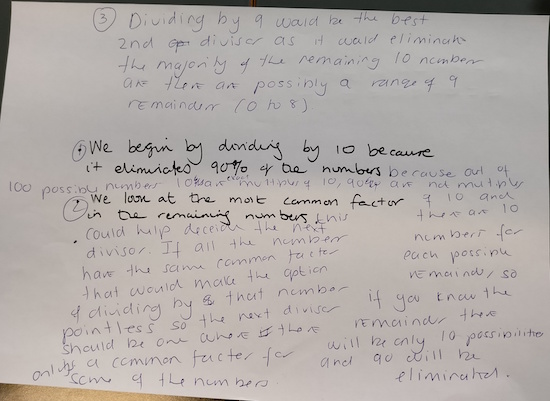 ③ Dividing by 9 would be the best
2nd divisor as it would eliminate
the majority of the remaining 10 numbers
as there are possibly a range of 9
remainders (0 to 8)
① We begin by dividing by 10 because
it eliminates 90% of the numbers because out of
100 possibly numbers 10 are multiply 10, 90 are not multiply
② We look at the most common factor of 10 and
in the remaining numbers, this there are 10
could help deceide the next numbers for
divisor. If all the numbers each possible
have the same common facter remainder, so
that would make the option if you know the
of dividing by that number remainder there
pointless so the next divisor will be only 10 possibilities
should be one where there and 90 will be
only is a common facter for eliminated.
some of the numbers.